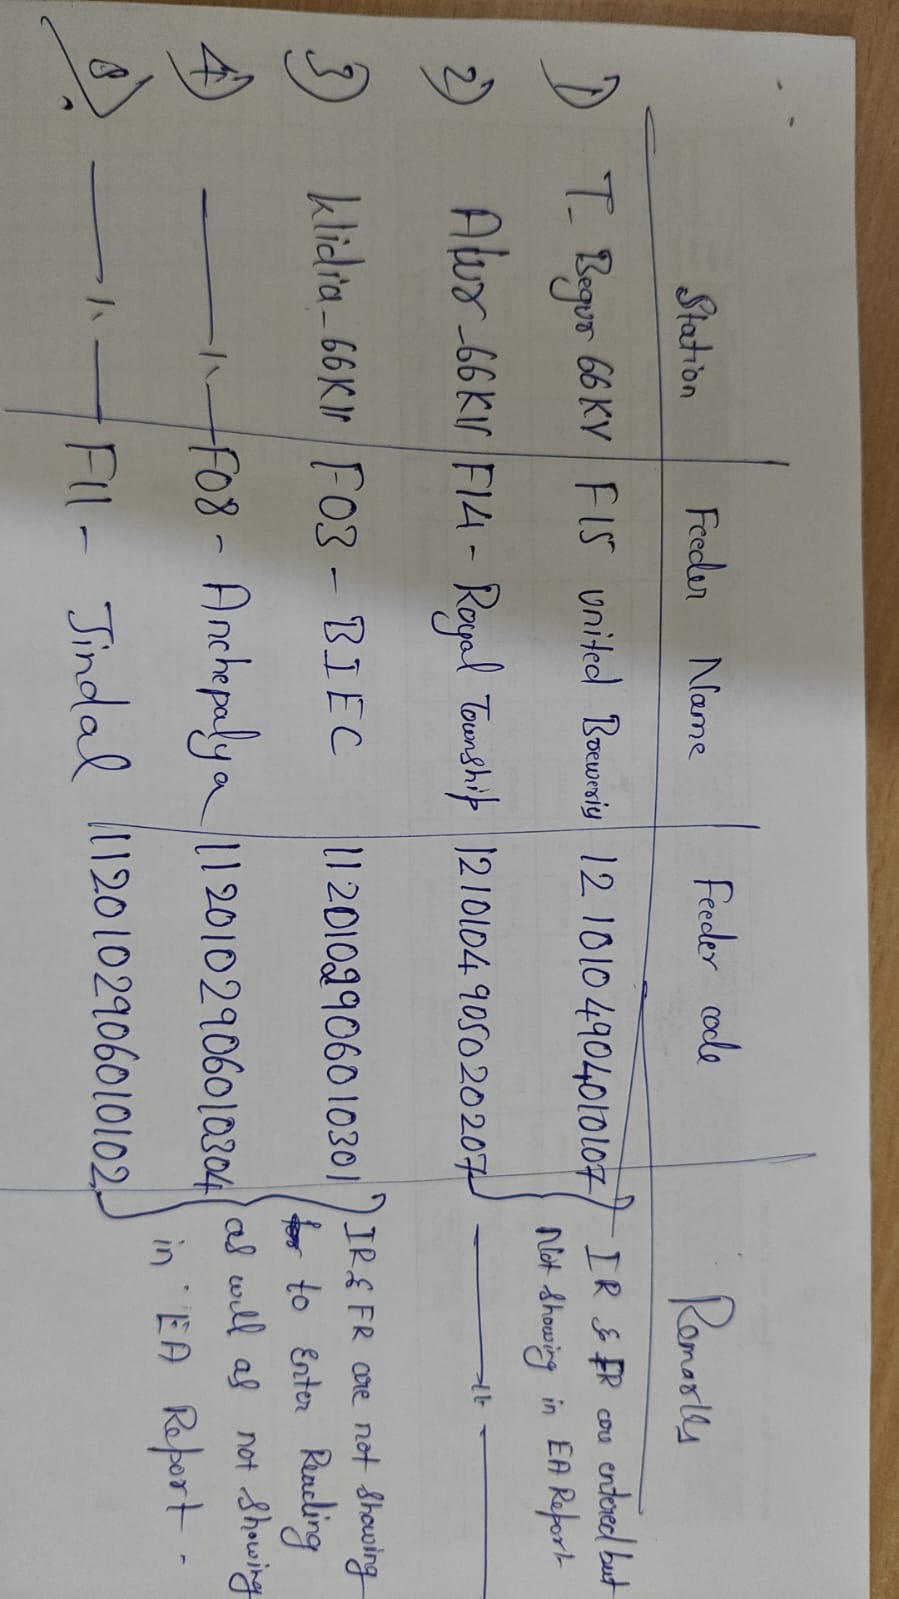 Station Feeder Name Feeder code Remarks
1) T- Begur 66KV F15 United Breweris 121010490401 0107 IR & FR are entered but
Not Showing in EA Report
2) Alur -66KV F14 - Royal Township 12101049050 20207 —— 〃 ——
3) klidia -66KV F03 - BIEC 1120102906010301 IR & FR are not showing
to Enter Reading
4) —— 〃 —— F08 - Anchepalya 1120102906010304 as will as not showing
5) —— 〃 —— F11 - Jindal 1120102906010102 in EA Report.